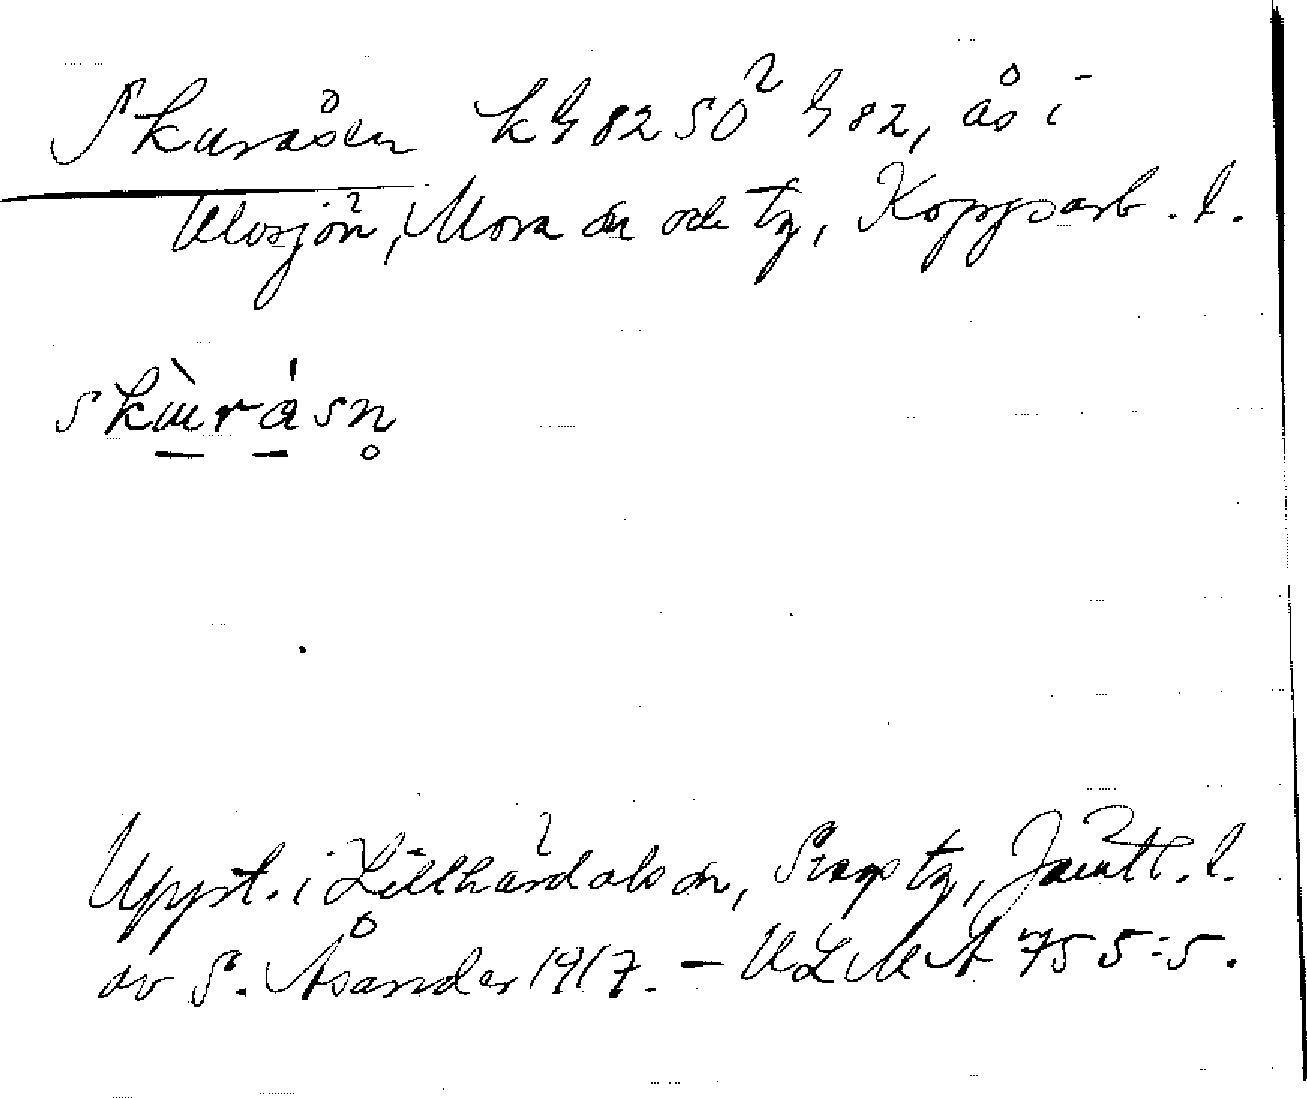 Skuråsen kh 82 SÖ h 82, ås i
Ulvsjön, Mora sn och tg, Kopparb. l.
skùrȧsn̥
Uppt. i Lillhärdals sn, Svegs tg, Jämtl. l.
av S. Åsander 1917. – ULMA 755:5.